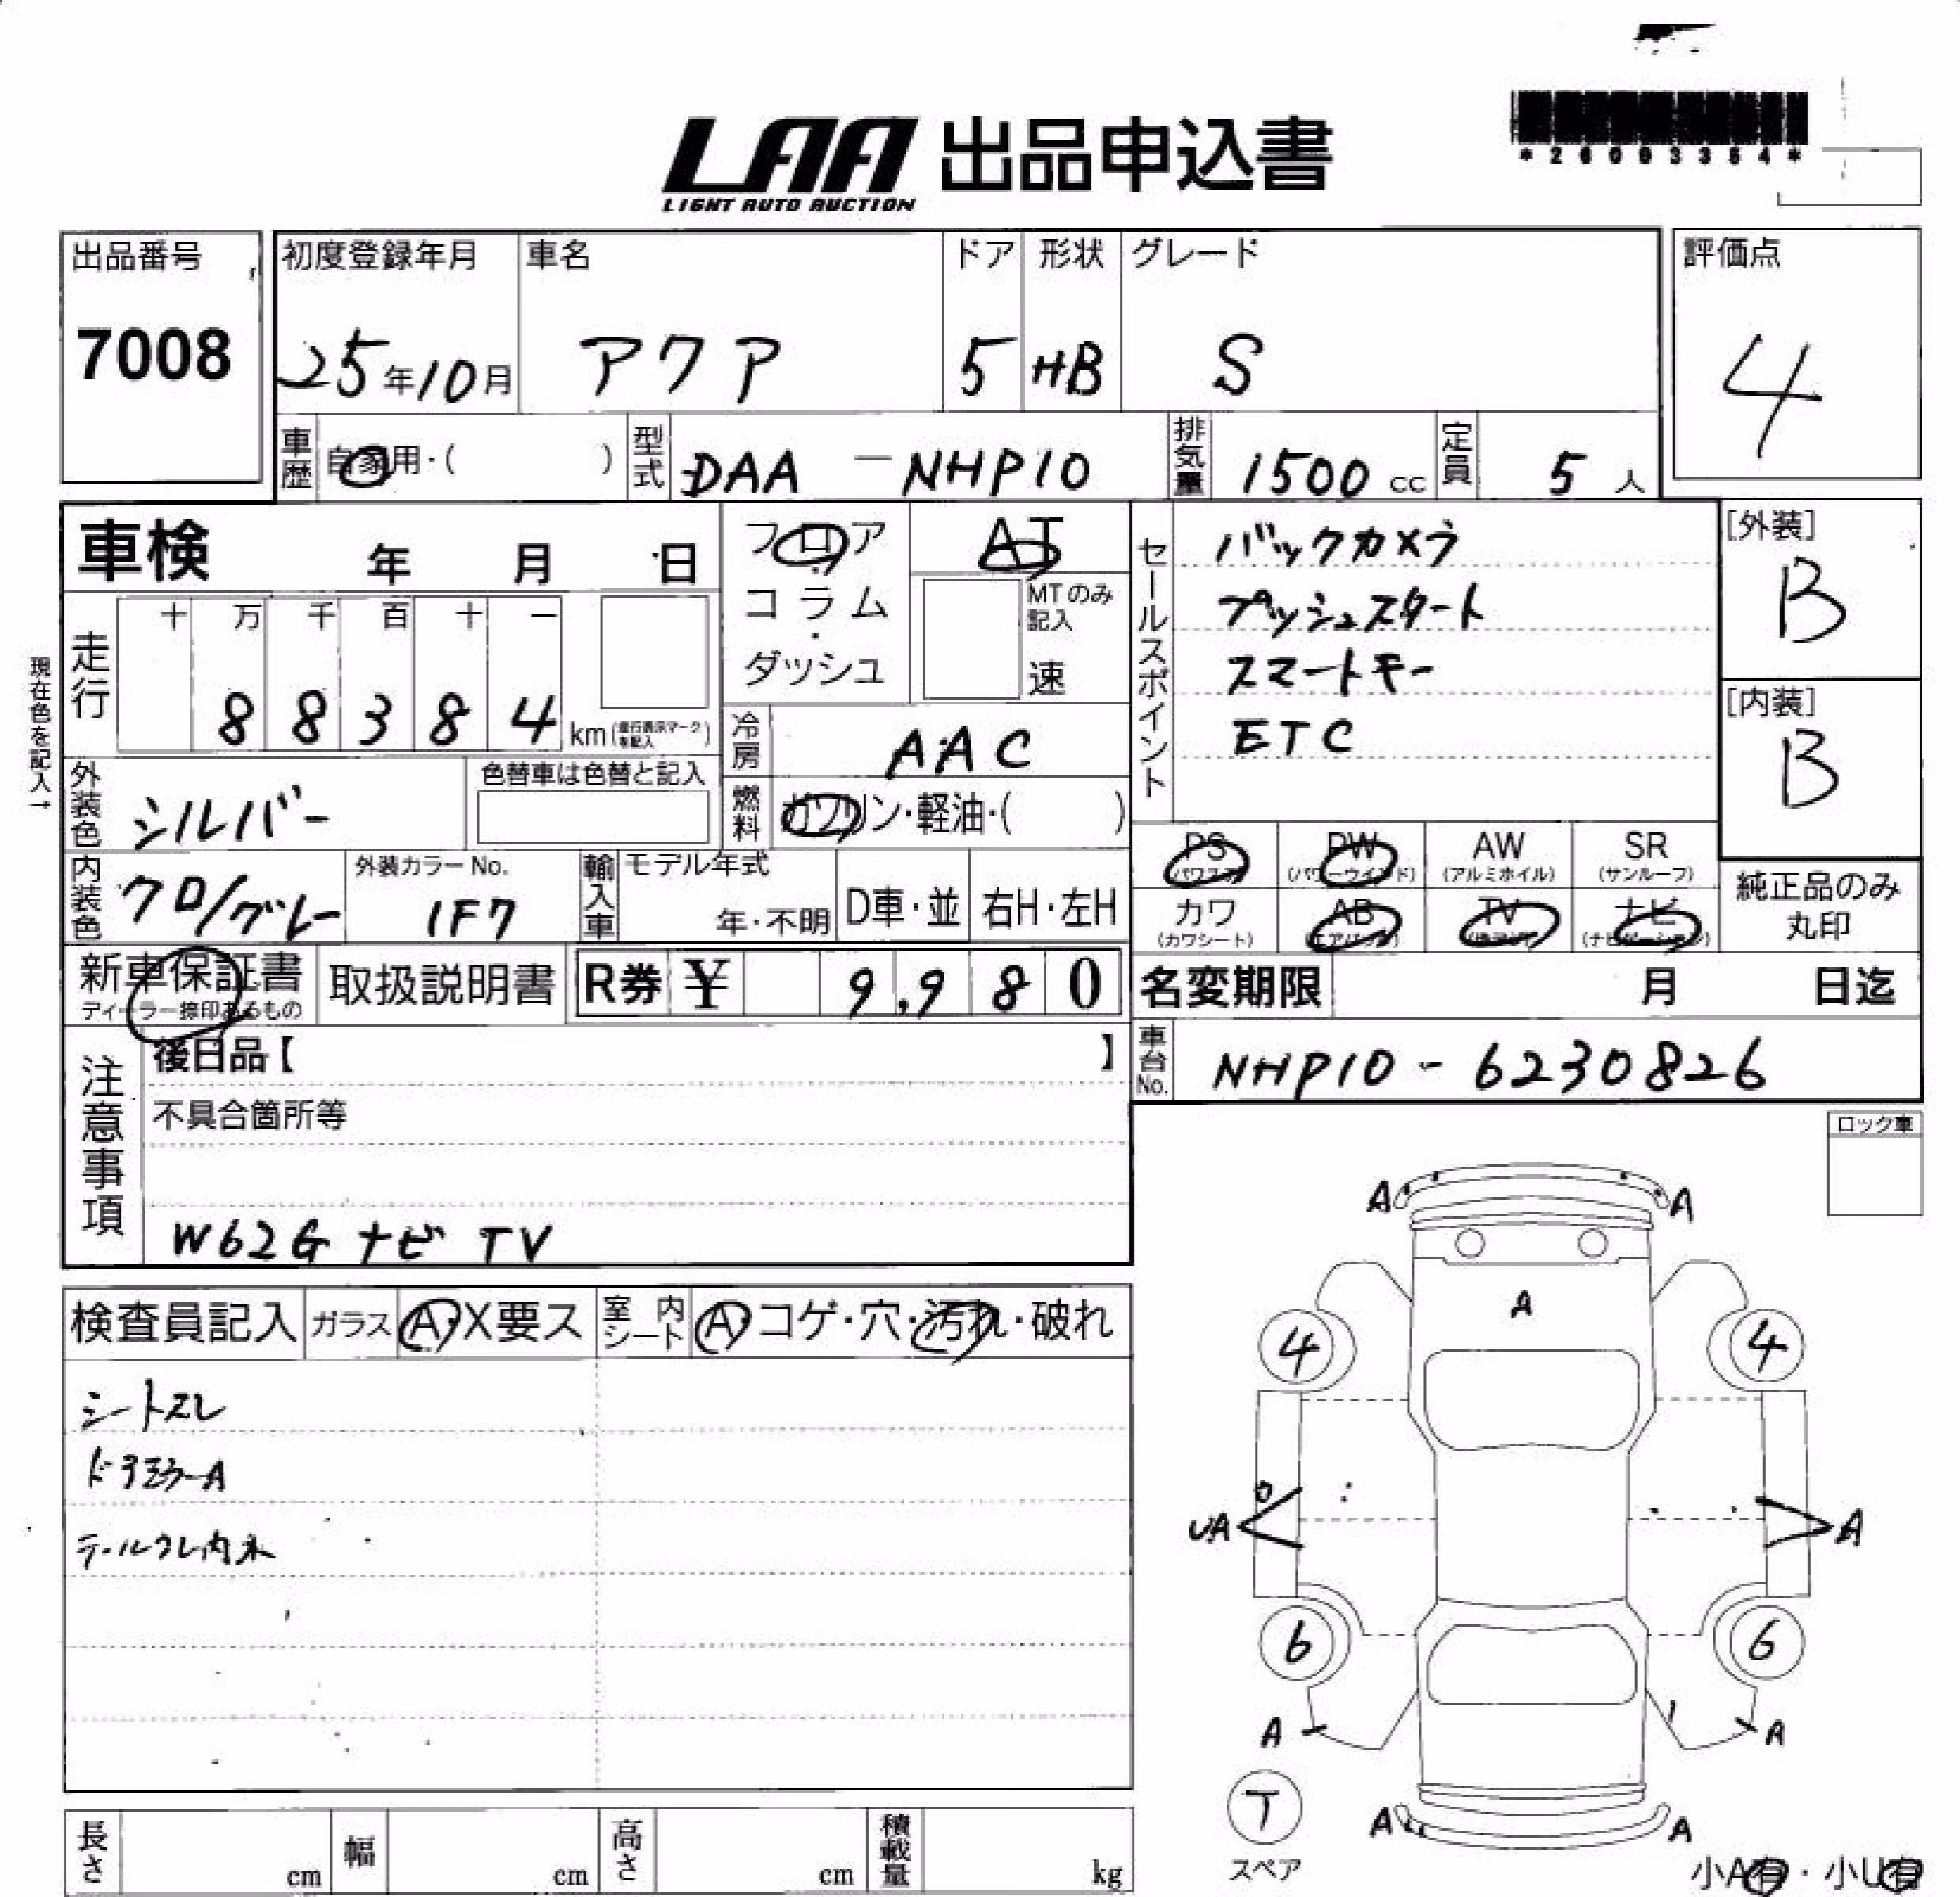 *26093354*
LAA 出品申込書
LIGHT AUTO AUCTION
出品番号
7008
初度登録年月
25年10月
車名
アクア
ドア
5
形状
HB
グレード
S
評価点
4
車歴 自家用・( )
型式 DAA-NHP10
排気量 1500 cc
定員 5 人
車検 年 月 日
フロア・コラム・ダッシュ
AT
MTのみ記入
速
セールスポイント
バックカメラ
プッシュスタート
スマートキー
ETC
[外装]
B
[内装]
B
現在色を記入→
走行
十 万 千 百 十 一
8 8 3 8 4 km
冷房 AAC
外装色 シルバー
色替車は色替と記入
燃料 ガソリン・軽油・( )
内装色 クロ/グレー
外装カラーNo.
1F7
輸入車
モデル年式
年・不明
D車・並
右H・左H
PS (パワステ)
PW (パワーウインド)
AW (アルミホイル)
SR (サンルーフ)
カワ (カワシート)
AB (エアバッグ)
TV
ナビ (ナビゲーション)
純正品のみ
丸印
新車保証書
ディーラー捺印あるもの
取扱説明書
R券 ¥ 9,980
名変期限 月 日迄
車台No. NHP10-6230826
注意事項
後日品【 】
不具合箇所等
W62G ナビ TV
ロック車
検査員記入
ガラス A・X要ス
室内シート A・コゲ・穴・汚れ・破れ
シートスレ
ドアミラーA
A A
A
4 4
UA A
6 6
A A
T
スペア
A A
小A有・小U有
長さ cm
幅 cm
高さ cm
積載量 kg